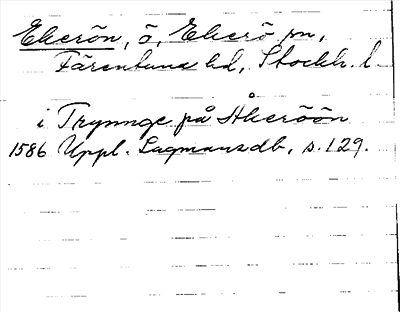 Ekerön, ö, Ekerö sn,
Färentuna hd, Stockh. l
i Trynnge på Åkeröön
1586 Uppl. Lagmansdb, s. 129.